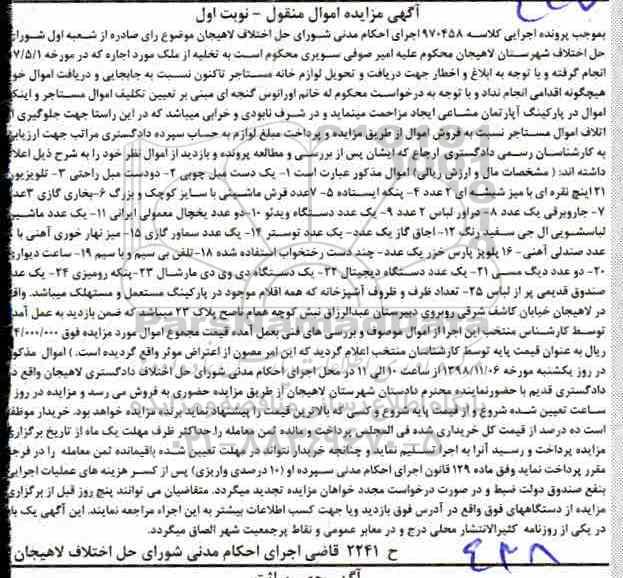 آگهی مزایده اموال منقول – نوبت اول
بموجب پرونده اجرایی کلاسه ۹۷۰۴۵۸ اجرای احکام مدنی شورای حل اختلاف لاهیجان موضوع رای صادره از شعبه اول شورای
حل اختلاف شهرستان لاهیجان محکوم علیه امیر صوفی سوپری محکوم است به تخلیه از ملک مورد اجاره که در مورخه ۹۷/۵/۱
انجام گرفته و با توجه به ابلاغ و اخطار جهت دریافت و تحویل لوازم خانه مستاجر تاکنون نسبت به جابجایی و دریافت اموال خود
هیچگونه اقدامی انجام نداد و با توجه به درخواست محکوم له خانم اورانوس گنجه ای مبنی بر تعیین تکلیف اموال مستاجر و اینکه
اموال در پارکینگ آپارتمان مشاعی ایجاد مزاحمت مینماید و در شرف نابودی و خرابی میباشد که در این راستا جهت جلوگیری از
اتلاف اموال مستاجر نسبت به فروش اموال از طریق مزایده و پرداخت مبلغ لوازم به حساب سپرده دادگستری مراتب جهت ارزیابی
به کارشناسان رسمی دادگستری ارجاع که ایشان پس از بررسی و مطالعه پرونده و بازدید از اموال نظر خود را به شرح ذیل اعلام
داشته اند: ( مشخصات مال و ارزش ریالی) اموال مذکور عبارت است ۱- یک دست مبل چوبی ۲- دودست مبل راحتی ۳- تلویزیون
۲۱اینچ نقره ای با میز شیشه ای ۲ عدد ۴- پنکه ایستاده ۵- ۷عدد فرش ماشینی با سایز کوچک و بزرگ ۶-بخاری گازی ۳عدد
۷- جاروبرقی یک عدد ۸- دراور لباس ۲ عدد ۹- یک عدد دستگاه ویدئو ۱۰-دو عدد یخچال معمولی ایرانی ۱۱- یک عدد ماشین
لباسشویی ال جی سفید رنگ ۱۲- اجاق گاز یک عدد- یک عدد توستر ۱۴- یک عدد سماور گازی ۱۵- میز نهار خوری آهنی با
عدد صندلی آهنی- ۱۶ پلوپز پارس خزر یک عدد- چند دست رختخواب استفاده شده ۱۸-تلفن بی سیم و با سیم ۱۹- ساعت دیواری
۲۰- دو عدد دیگ مسی ۲۱- یک عدد دستگاه دیجیتال ۲۲- یک دستگاه دی وی دی مارشال ۲۳-پنکه رومیزی ۲۴- یک عدد
صندوق قدیمی پر از لباس ۲۵- تعداد ظرف و ظروف آشپزخانه که همه اقلام موجود در پارکینگ مستعمل و مستهلک میباشد. واقع
در لاهیجان خیابان کاشف شرقی روبروی دبیرستان عبدالرزاق نبش کوچه همام ناصح پلاک ۲۳ میباشد که ضمن بازدید به عمل آمده
توسط کارشناس منتخب این اجرا از اموال موصوف و بررسی های فنی بعمل آمده قیمت مجموع اموال مورد مزایده فوق ۴/۰۰۰/۰۰۰
ریال به عنوان قیمت پایه توسط کارشناسان منتخب اعلام گردید که این امر مصون از اعتراض موثر واقع گردیده است. ) اموال مذکور
در روز یکشنبه مورخه ۱۳۹۸/۱۱/۰۶از ساعت ۱۰ الی ۱۱ در محل اجرای احکام مدنی شورای حل اختلاف دادگستری لاهیجان واقع در
دادگستری قدیم با حضورنماینده محترم دادستان شهرستان لاهیجان از طریق مزایده حضوری به فروش می رسد و مزایده در روز و
ساعت تعیین شده شروع و از قیمت پایه شروع و کسی که بالاترین قیمت را پیشنهاد نماید برنده مزایده خواهد بود. خریدار موظف
است ده درصد از قیمت کل خریداری شده فی المجلس پرداخت و مانده ثمن معامله را حداکثر ظرف مهلت یک ماه از تاریخ برگزاری
مزایده پرداخت و رسید آنرا به اجرا تسلیم نماید و چنانچه خریدار نتواند در مهلت تعیین شده باقیمانده ثمن معامله را در فرجه
مقرر پرداخت نماید وفق ماده ۱۲۹ قانون اجرای احکام مدنی سپرده او (۱۰ درصدی واریزی) پس از کسر هزینه های عملیات اجرایی
بنفع صندوق دولت ضبط و در صورت درخواست مجدد خواهان مزایده تجدید میگردد. متقاضیان می توانند پنج روز قبل از برگزاری
مزایده از دستگاههای فوق واقع در آدرس فوق بازدید ویا جهت کسب اطلاعات بیشتر به این اجراء مراجعه نمایند. این آگهی یک بار
در یکی از روزنامه کثیرالانتشار محلی درج و در معابر عمومی و نقاط پرجمعیت شهر الصاق میگردد.
ح ۲۲۴۱ قاضی اجرای احکام مدنی شورای حل اختلاف لاهیجان
۰۲۱-۸۸۳۴۹۶۷۰-۵